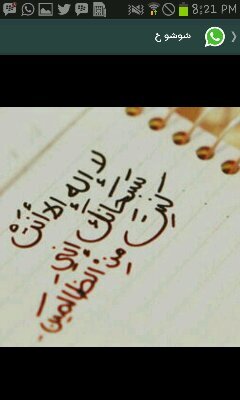 8:21 PM
شوشو خ
لا إله إلا أَنتْ
سبَحَانَكَ إنِيِ
كنتَ
مِنِ الظالمين